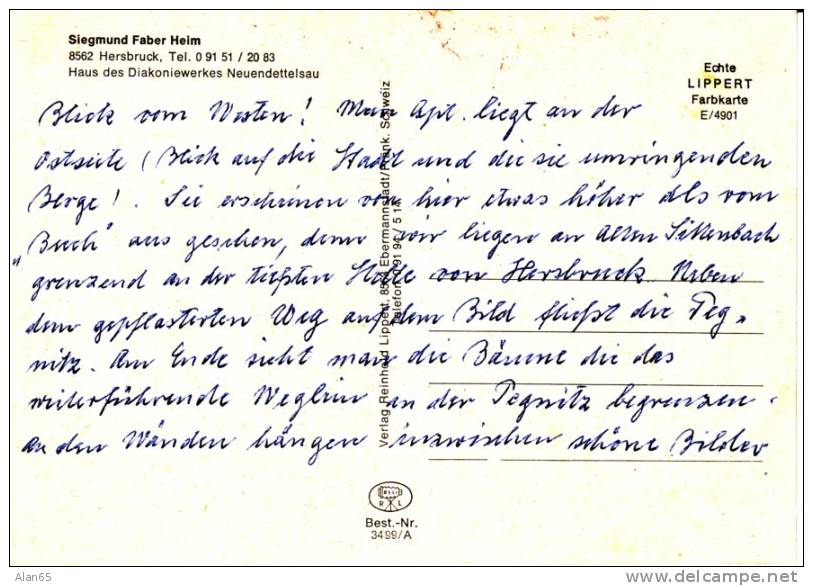 Siegmund Faber Heim
8562 Hersbruck, Tel. 0 91 51 / 20 83
Haus des Diakoniewerkes Neuendettelsau
Echte
LIPPERT
Farbkarte
E/4901
Blick vom Westen! Mein Apt. liegt an der
Ostseite (Blick auf die Stadt und die sie umringenden
Berge! Sie erscheinen von hier etwas höher als vom
"Buch" aus gesehen, denn wir liegen an Alten Sittenbach
grenzend an der tiefsten Stelle von Hersbruck. Neben
dem gepflasterten Weg auf dem Bild fließt die Peg-
nitz. Am Ende sieht man die Bäume die das
weiterführende Weglein an der Pegnitz begrenzen.
An den Wänden hängen inzwischen schöne Bilder
Verlag Reinhold Lippert, 8553 Ebermannstadt/Fränk. Schweiz
Telefon 0 91 94 / 5 14
RELI
R L
Best.-Nr.
3499/A
Alan65
http://www.delcampe.net